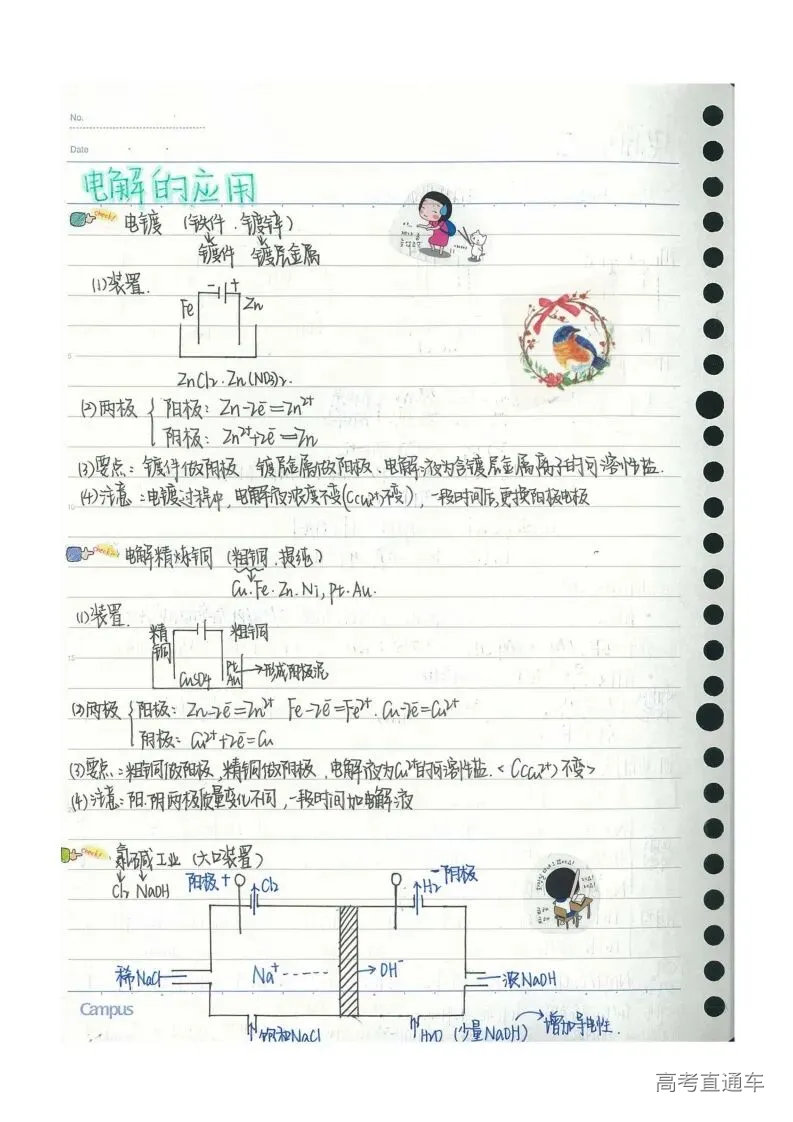 No.
Date
电解的应用
check! 电镀 (铁件.镀锌)
镀件 镀层金属
(1)装置.
- +
Fe Zn
ZnCl2.Zn(NO3)2.
(2)两极 { 阳极: Zn-2e⁻=Zn²⁺
阴极: Zn²⁺+2e⁻=Zn
(3)要点: 镀件做阴极 镀层金属做阳极、电解液为含镀层金属离子的可溶性盐.
(4)注意:电镀过程中,电解液浓度不变(C(Cu²⁺)不变),一段时间后,更换阳极电极
check! 电解精炼铜 (粗铜.提纯)
Cu.Fe.Zn.Ni,Pt.Au.
(1)装置.
精铜 粗铜
CuSO4 Pt Au →形成阳极泥
(2)两极 { 阳极: Zn-2e⁻=Zn²⁺ Fe-2e⁻=Fe²⁺.Cu-2e⁻=Cu²⁺
阴极: Cu²⁺+2e⁻=Cu
(3)要点:粗铜做阳极,精铜做阴极,电解液为Cu²⁺的可溶性盐.<C(Cu²⁺)不变>
(4)注意:阳.阴两极质量变化不同,一段时间加电解液
check! 氯碱工业 (六口装置)
Cl2 NaOH
阳极+ Cl2 H2 -阴极
稀NaCl Na⁺ ----- →OH⁻ 浓NaOH
Campus
饱和NaCl H2O (少量NaOH) 增加导电性.
高考直通车